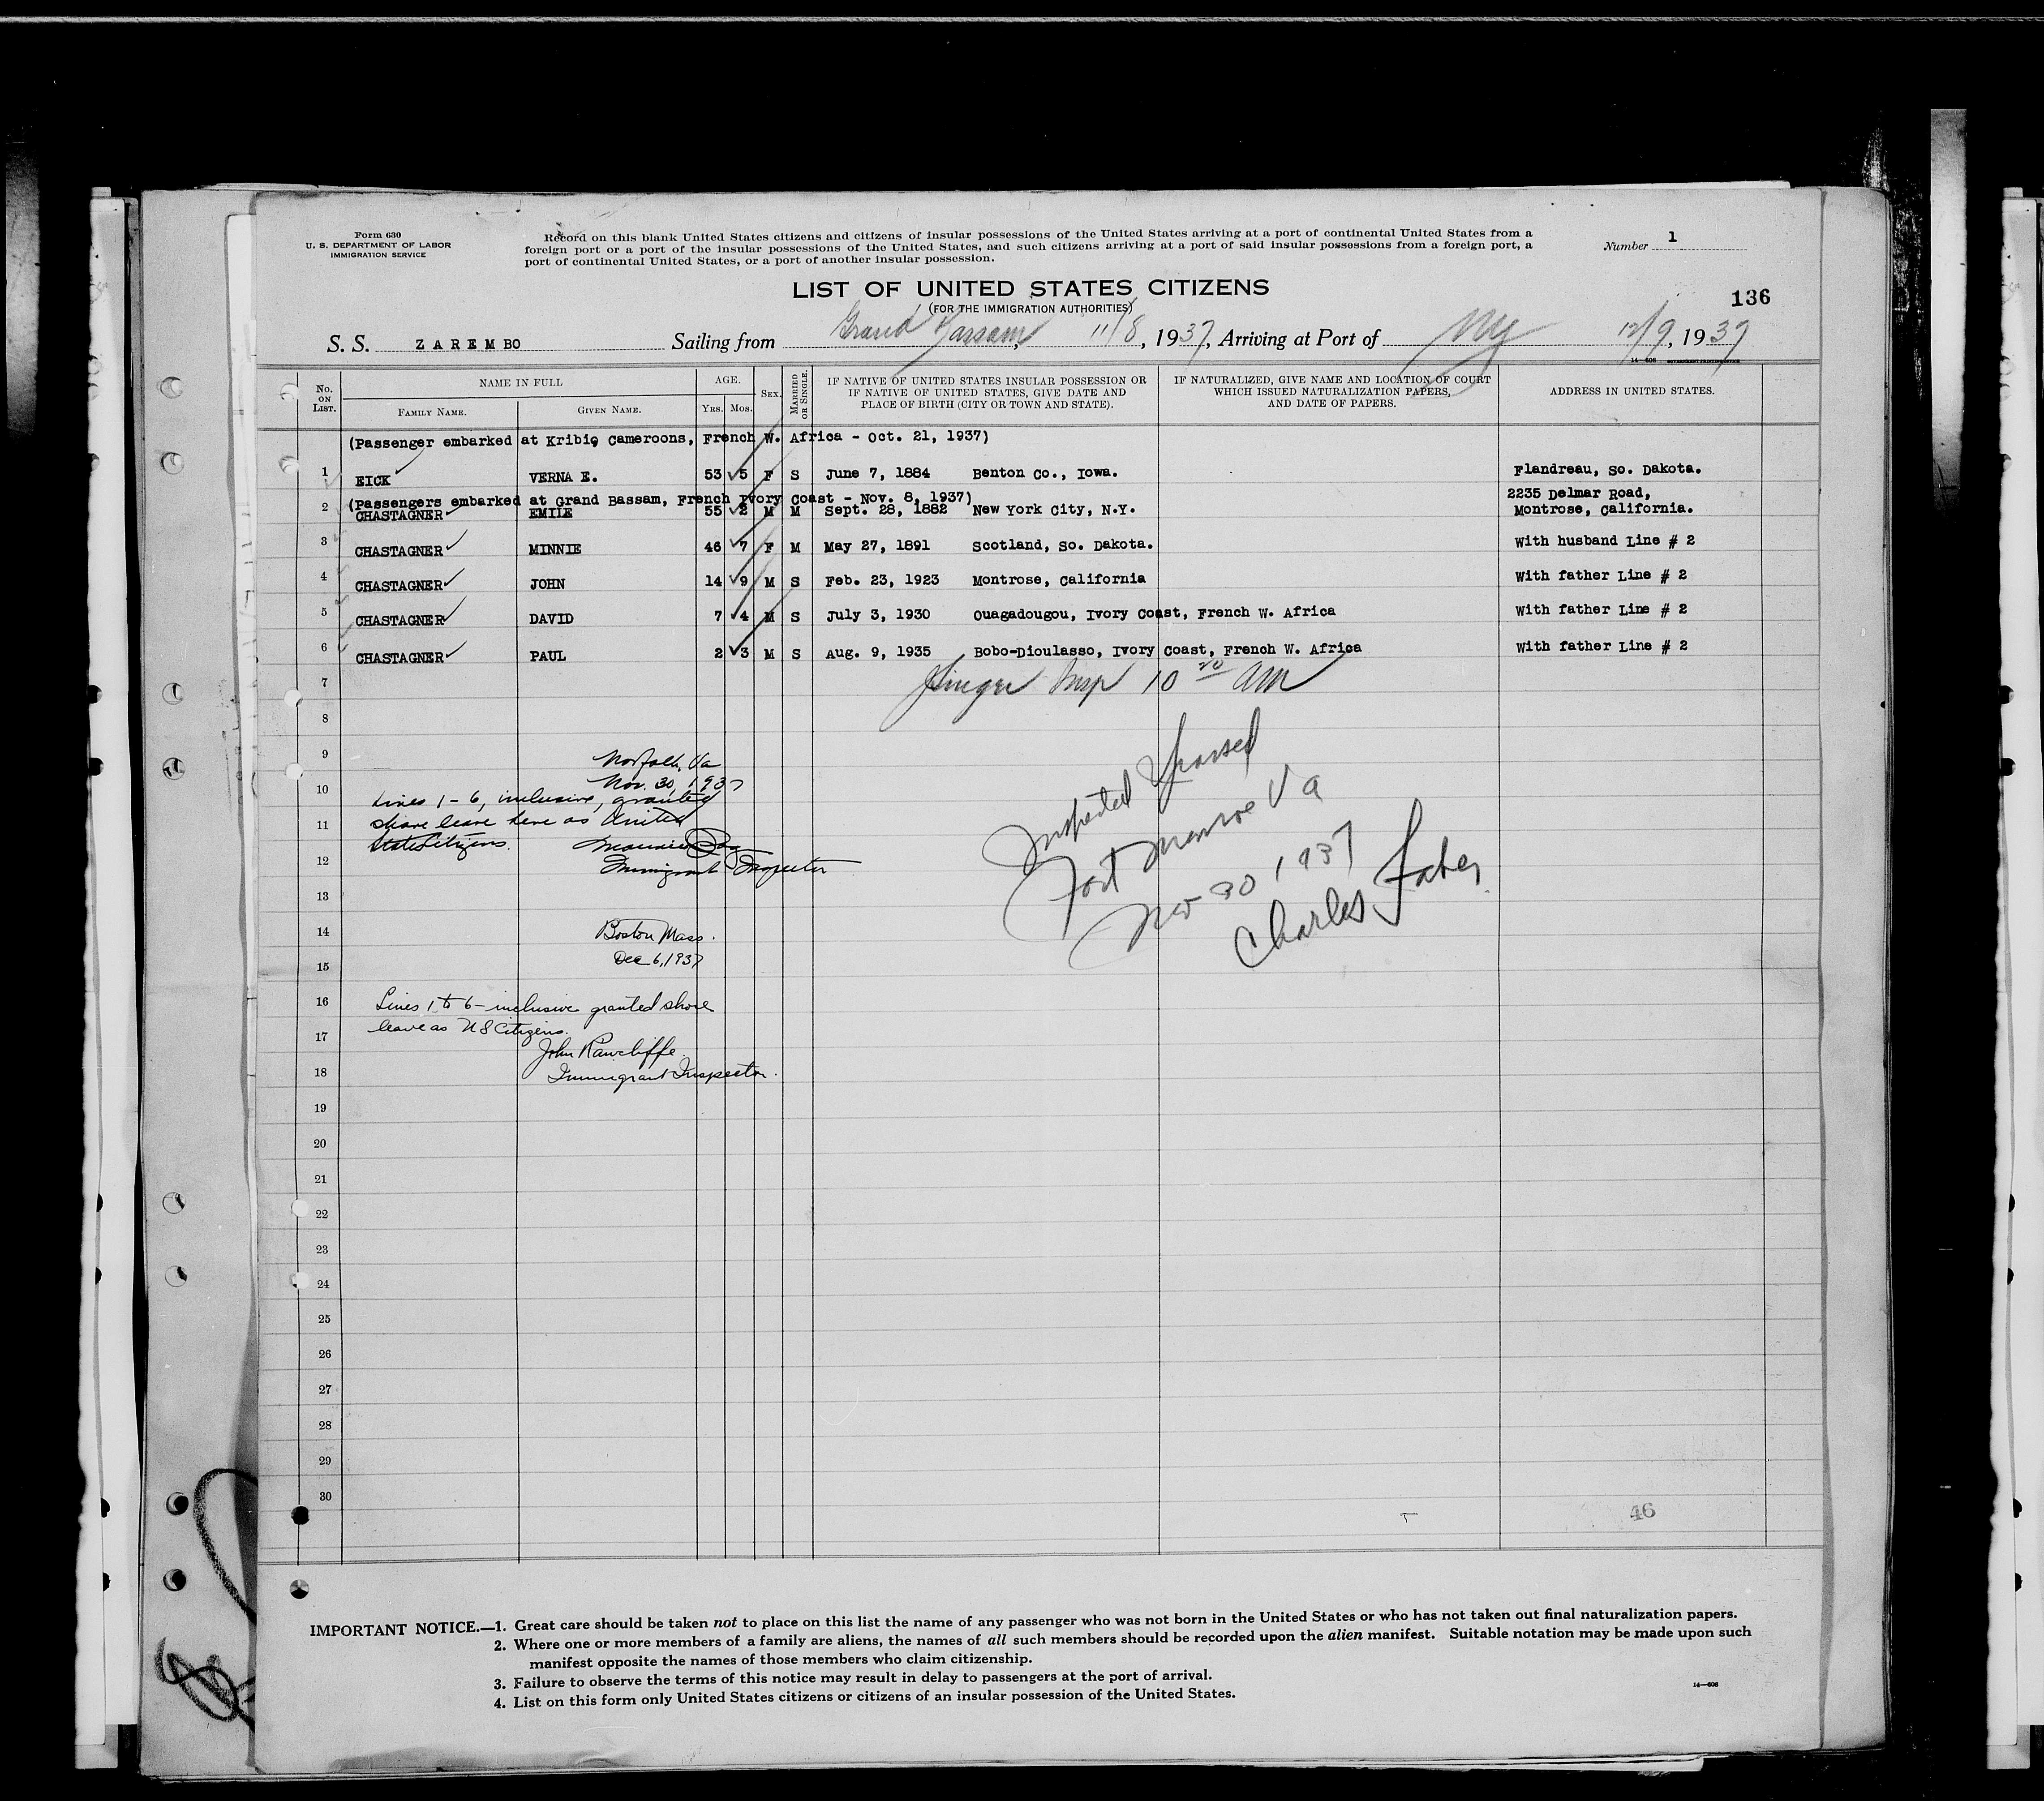 Form 630
U. S. DEPARTMENT OF LABOR
IMMIGRATION SERVICE
Record on this blank United States citizens and citizens of insular possessions of the United States arriving at a port of continental United States from a
foreign port or a port of the insular possessions of the United States, and such citizens arriving at a port of said insular possessions from a foreign port, a
port of continental United States, or a port of another insular possession.
Number 1
LIST OF UNITED STATES CITIZENS
(FOR THE IMMIGRATION AUTHORITIES)
136
S. S. ZAREMBO Sailing from Grand Bassam, 11/8, 1937, Arriving at Port of NY 12/9, 1937
14—608 GOVERNMENT PRINTING OFFICE
No. ON LIST. NAME IN FULL FAMILY NAME. GIVEN NAME. AGE. YRS. MOS. SEX. MARRIED OR SINGLE. IF NATIVE OF UNITED STATES INSULAR POSSESSION OR IF NATIVE OF UNITED STATES, GIVE DATE AND PLACE OF BIRTH (CITY OR TOWN AND STATE). IF NATURALIZED, GIVE NAME AND LOCATION OF COURT WHICH ISSUED NATURALIZATION PAPERS, AND DATE OF PAPERS. ADDRESS IN UNITED STATES.
(Passenger embarked at Kribi, Cameroons, French W. Africa - Oct. 21, 1937)
1 EICK VERNA E. 53 5 F S June 7, 1884 Benton Co., Iowa. Flandreau, So. Dakota.
(Passengers embarked at Grand Bassam, French Ivory Coast - Nov. 8, 1937) 2235 Delmar Road,
2 CHASTAGNER EMILE 55 2 M M Sept. 28, 1882 New York City, N.Y. Montrose, California.
3 CHASTAGNER MINNIE 46 7 F M May 27, 1891 Scotland, So. Dakota. With husband Line # 2
4 CHASTAGNER JOHN 14 9 M S Feb. 23, 1923 Montrose, California With father Line # 2
5 CHASTAGNER DAVID 7 4 M S July 3, 1930 Ouagadougou, Ivory Coast, French W. Africa With father Line # 2
6 CHASTAGNER PAUL 2 3 M S Aug. 9, 1935 Bobo-Dioulasso, Ivory Coast, French W. Africa With father Line # 2
7 Insp 10 20 AM
8
9 Norfolk, Va
10 Nov. 30, 1937
Lines 1-6, inclusive, granted
11 shore leave here as United
States Citizens.
12 Immigrant Inspector
Inspected & passed
Fort Monroe Va
Nov 30 1937
Charles Faber
13
14 Boston Mass.
15 Dec 6, 1937
16 Lines 1 to 6 - inclusive granted shore
17 leave as U S Citizens.
John Rawcliffe.
18 Immigrant Inspector.
19
20
21
22
23
24
25
26
27
28
29
30
46
IMPORTANT NOTICE.—1. Great care should be taken not to place on this list the name of any passenger who was not born in the United States or who has not taken out final naturalization papers.
2. Where one or more members of a family are aliens, the names of all such members should be recorded upon the alien manifest. Suitable notation may be made upon such
manifest opposite the names of those members who claim citizenship.
3. Failure to observe the terms of this notice may result in delay to passengers at the port of arrival.
4. List on this form only United States citizens or citizens of an insular possession of the United States.
14—608